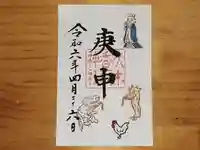 庚申
令和二年四月二十六日